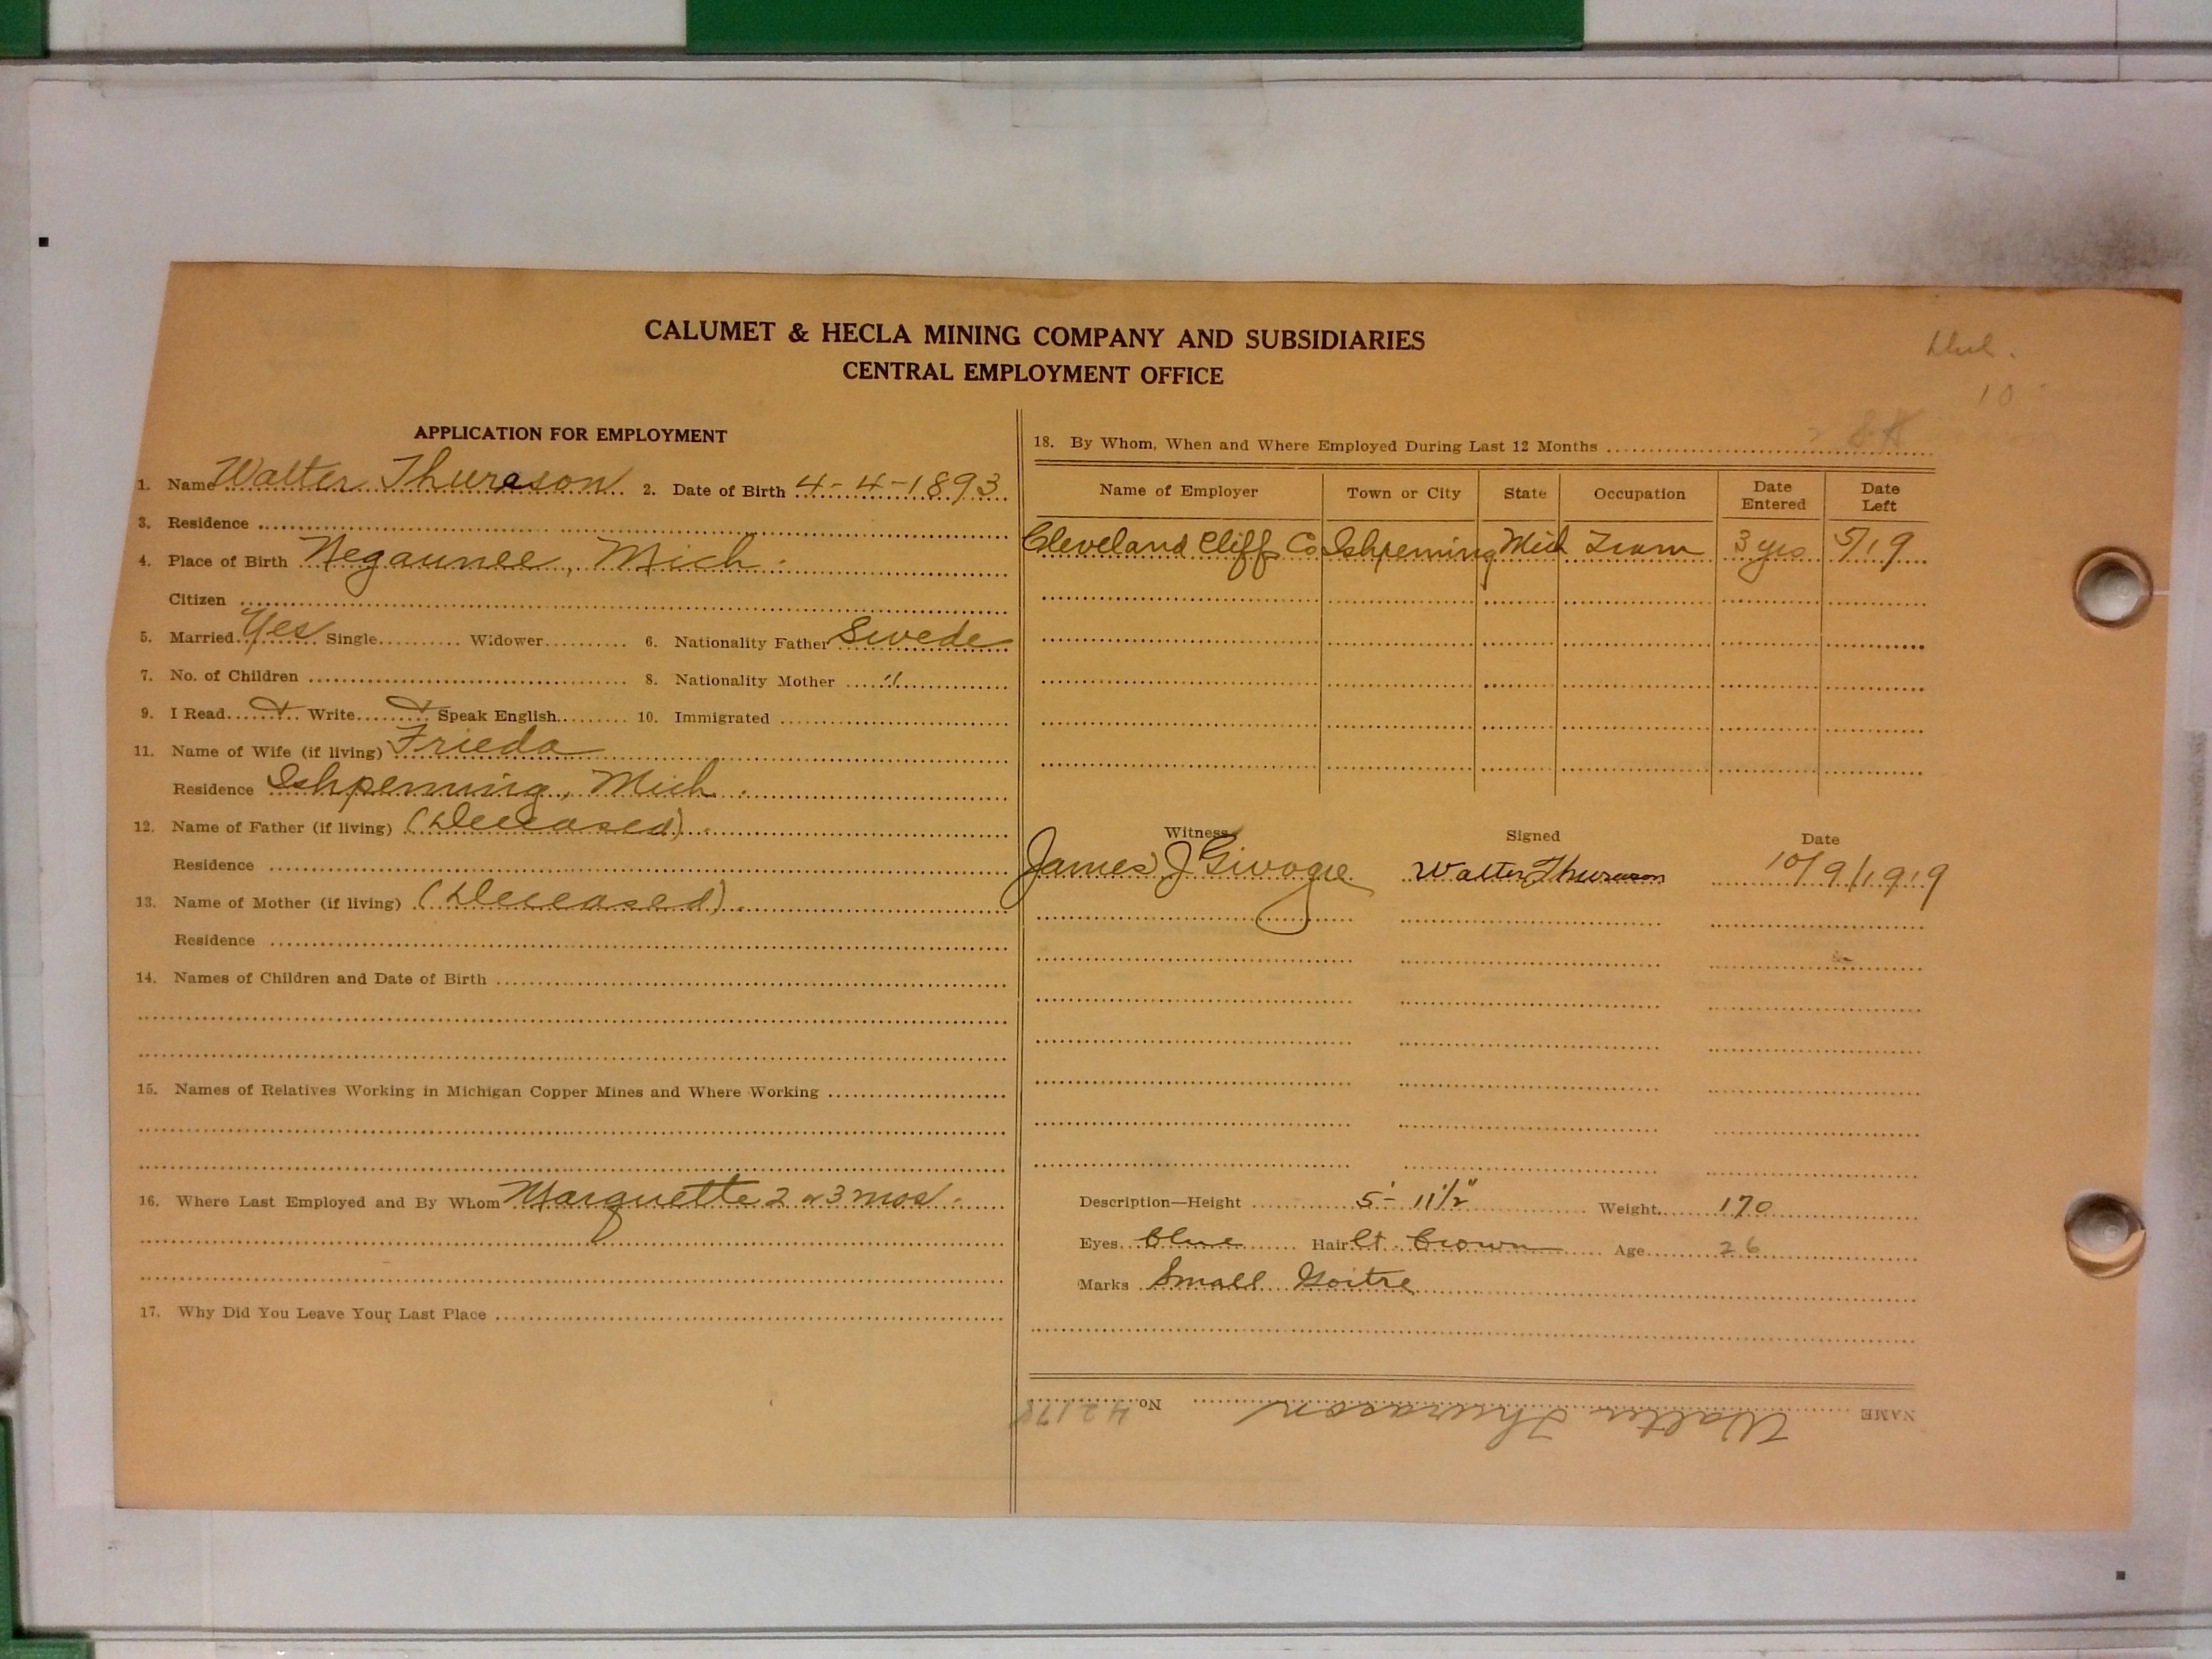 CALUMET & HECLA MINING COMPANY AND SUBSIDIARIES
CENTRAL EMPLOYMENT OFFICE
10
APPLICATION FOR EMPLOYMENT
1. Name Walter Thureson 2. Date of Birth 4-4-1893
3. Residence
4. Place of Birth Negaunee, Mich.
Citizen
5. Married Yes Single Widower 6. Nationality Father Swede
7. No. of Children 8. Nationality Mother "
9. I Read Write Speak English 10. Immigrated
11. Name of Wife (if living) Frieda
Residence Ishpeming, Mich.
12. Name of Father (if living) (Deceased).
Residence
13. Name of Mother (if living) (Deceased).
Residence
14. Names of Children and Date of Birth
15. Names of Relatives Working in Michigan Copper Mines and Where Working
16. Where Last Employed and By Whom Marquette 2 or 3 mos.
17. Why Did You Leave Your Last Place
18. By Whom, When and Where Employed During Last 12 Months
Name of Employer Town or City State Occupation Date Entered Date Left
Cleveland Cliffs Co Ishpeming Mich Tram 3 yrs 5/19
Witness Signed Date
James J Givogre Walter Thureson 10/9/1919
Description—Height 5'-11 1/2" Weight 170
Eyes blue Hair lt. brown Age 26
Marks Small Goitre
NAME Walter Thureson No.